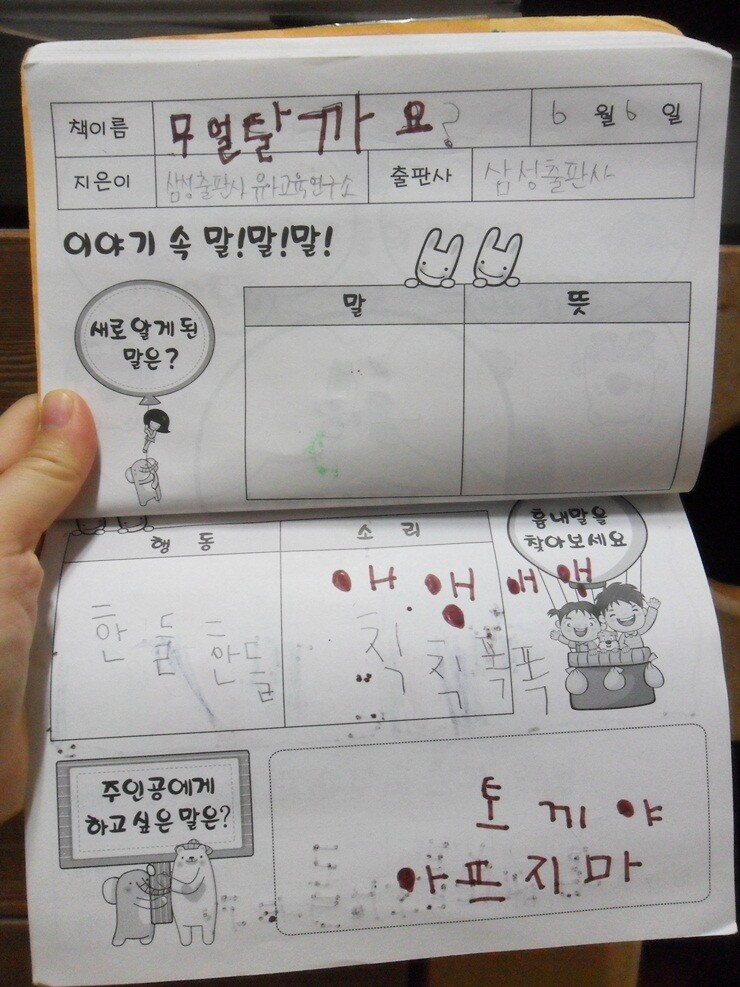 책이름 무얼탈까요? 6월 6일
지은이 삼성출판사 유아교육연구소 출판사 삼성출판사
이야기 속 말!말!말!
새로 알게 된
말은?
말 뜻
행동 소리
흉내말을
찾아보세요
애앵애앵
한들한들
칙칙폭폭
주인공에게
하고 싶은 말은?
토끼야
아프지마